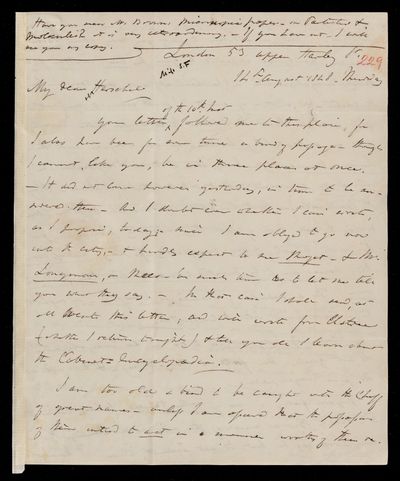 Have you seen Mr. Brown's Microscopic paper - on Particles &
Molecules it is very extraordinary. - If you have not, I will
send you my copy.
London 53 Upper Harley St.
229
14th August 1828. Thursday
My dear Herschel
of the 10th Inst
Your letter followed me to this place, for
I also have been for some time a bird of passage - though
I cannot, like you, be in three places at once.
- It did not come however yesterday, in time to be an-
swered then - And I doubt even whether I can write,
as I propose, today; since I am obliged to go now
into the City, - & hardly expect to see & Mr.
Longman, or Rees - be such time as to let me tell
you what they say. - In that case I shall send, at
all events this letter, and will write from Elstree
(whither I return tonight) & tell you all I learn about
the Cabinet Encyclopædia.
I am too old a bird to be caught with the Chaff
of great names - unless I am assured that the possessors
of them intend to act in a manner worthy of them or